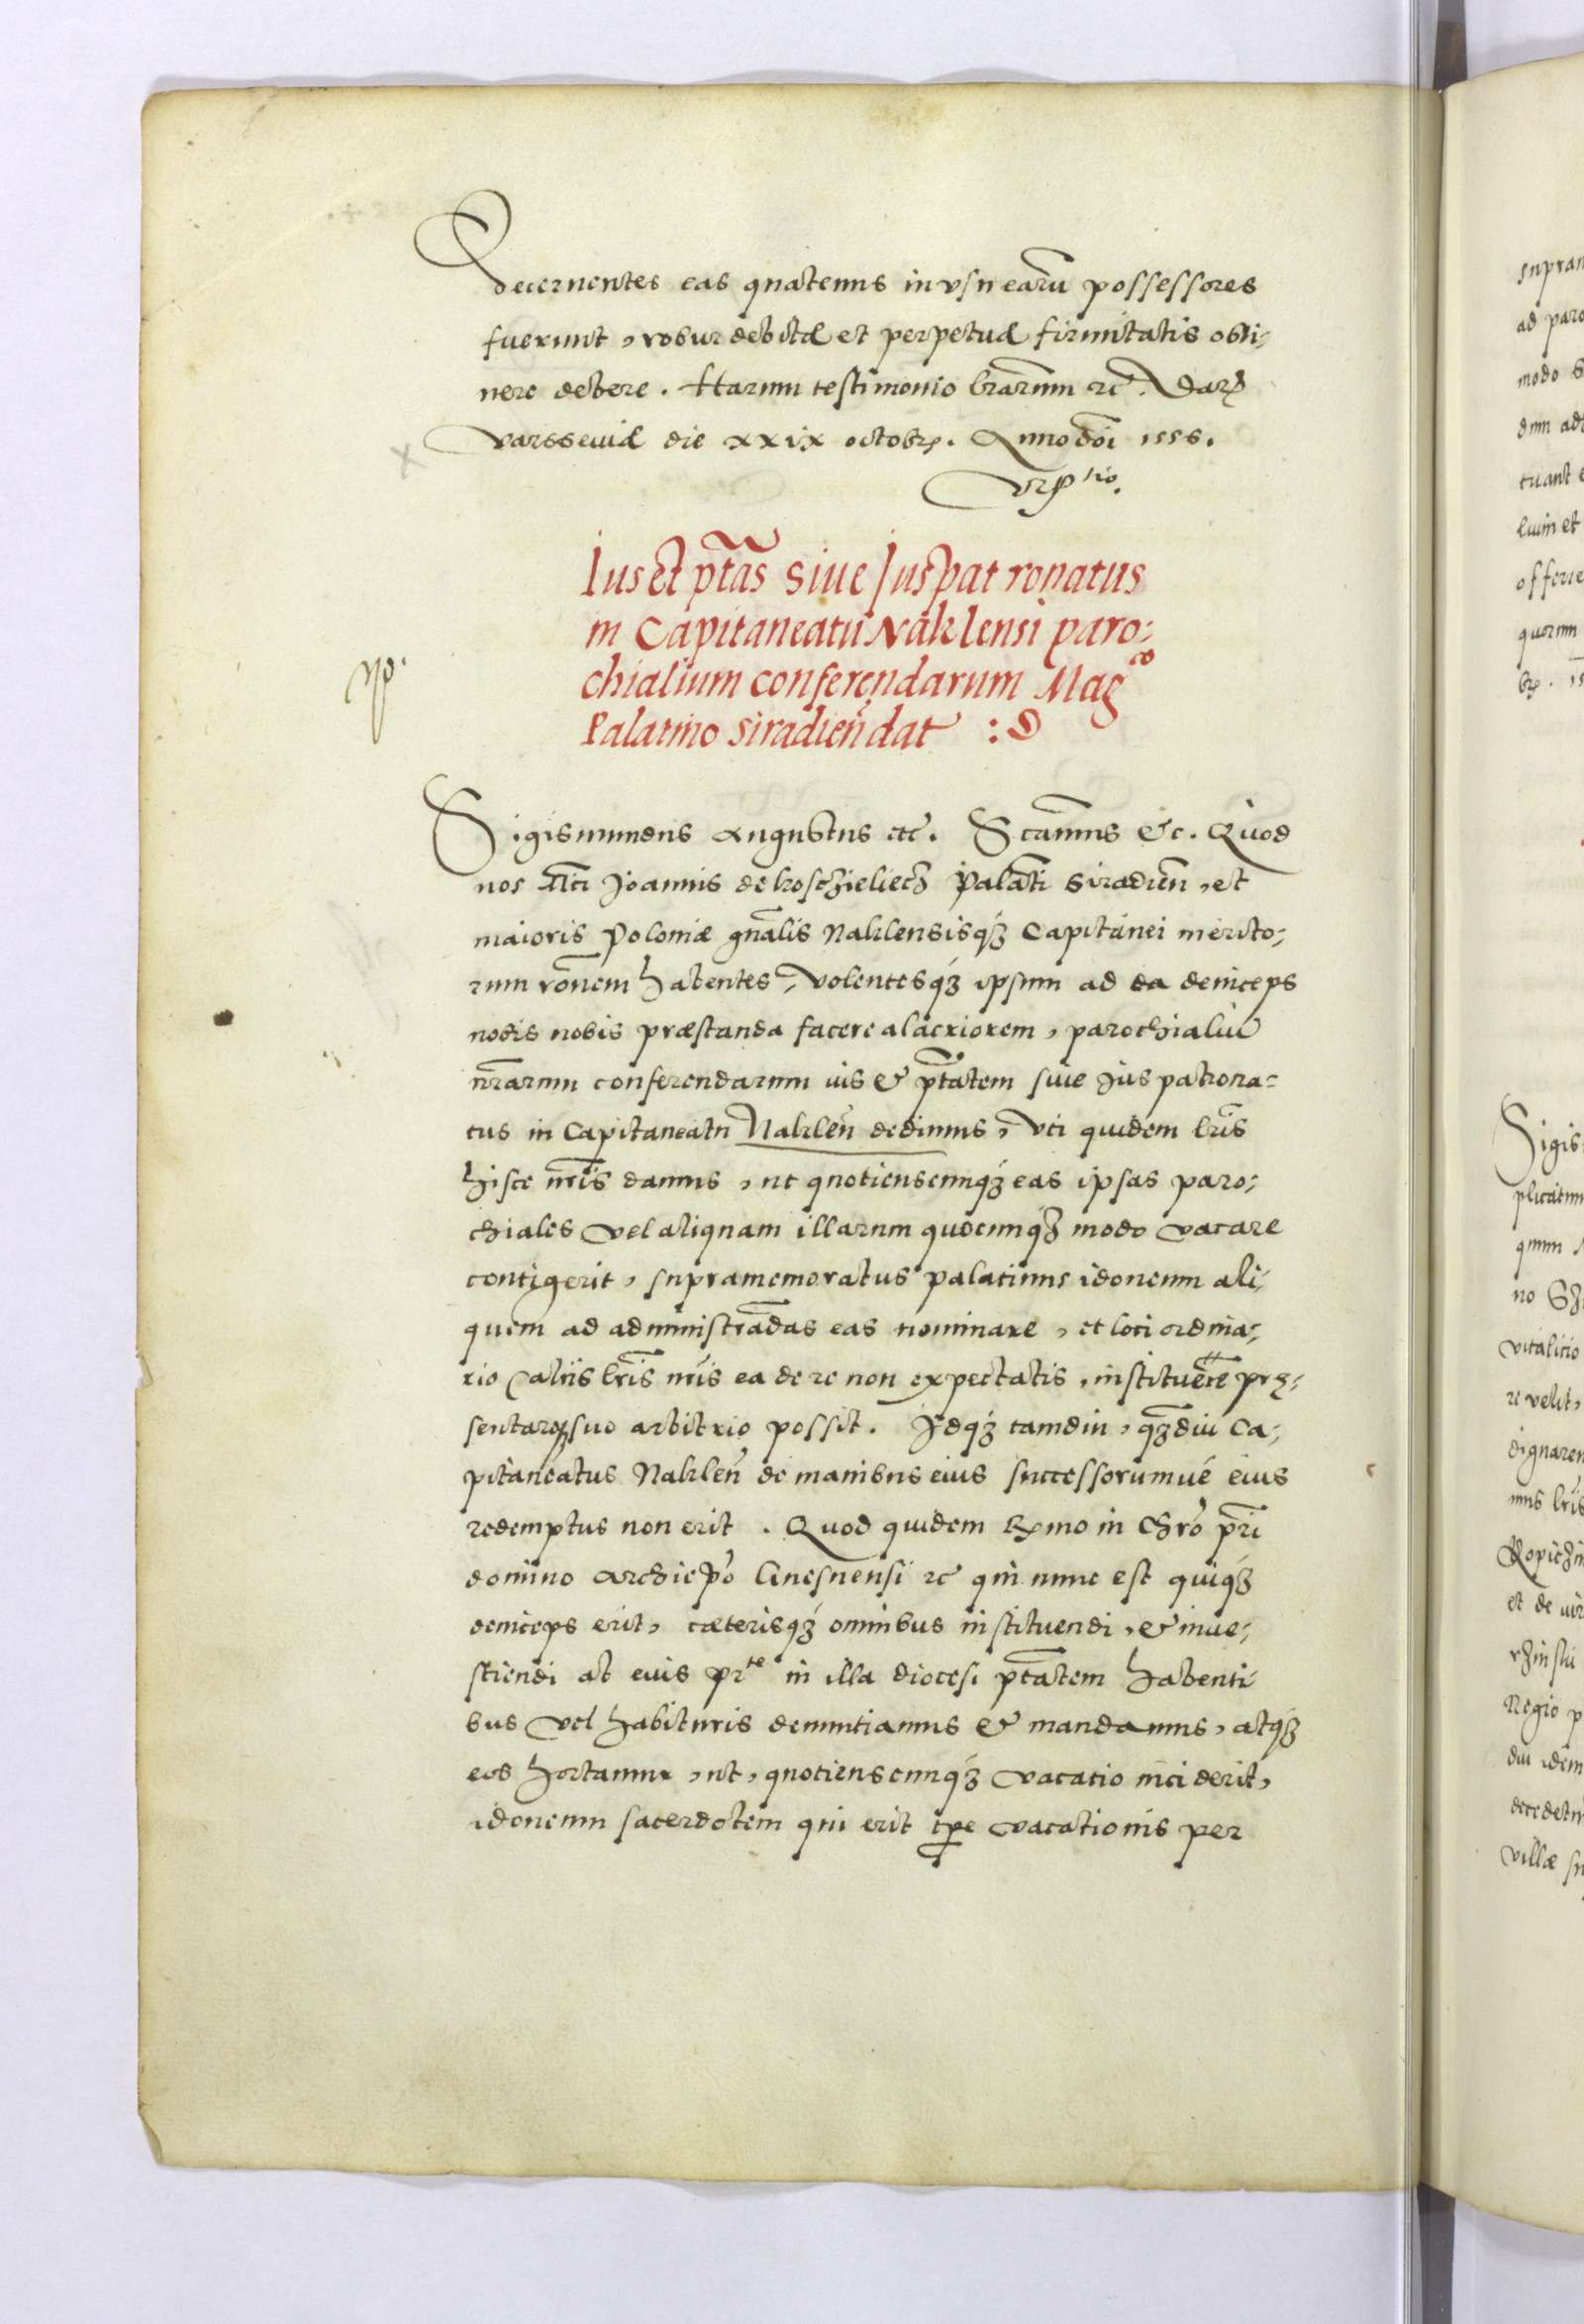 Decernentes eas quatenus in vsu earū possessores
fuerunt, robur debitæ et perpetuæ firmitatis obti-
nere debere. Harum testimonio lrārum rc̄. Datȝ
Varsseuiæ die xxix octobrȝ. Anno dñi 1556.
Ius et ptās siue Jus pat ronatus
in Capitaneatu Naklensi paro-
chialium conferendarum Mag co
Palatino Siradień dat :
Sigismundus Augustus etc. Scamus &c. Quod
nos Joannis de kosczieliecz Palāti Siradień, et
maioris Poloniæ gnālis Naklensisqȝ Capitanei merito-
rum rōnem habentes, volentesqȝ ipsum ad ea deinceps
nobis nobis præstanda facere alacriorem, parochialiū
nr̄arum conferendarum ius & ptātem siue Jus patrona-
tus in Capitaneatu Naklen̄ dedimus, Vti quidem lrīs
hisce nrīs damus, ut quotienscunqȝ eas ipsas paro-
chiales vel aliquam illarum quocunqȝ modo vacare
contigerit, supramemoratus palatinus idoneum ali-
quem ad administrādas eas nominare, et loci ordina-
rio (aliis lrīs nrīs ea de re non expectatis, instituere prę-
sentareqȝ suo arbitrio possit. Idqȝ tamdiu, qȝdiu Ca-
pitaneatus Naklen̄ de manibus eius successorumué eius
redemptus non erit. Quod quidem Rx̄mo in Chrō prī
domino archiep̄o Gnesnensi rc qui nunc est quiqȝ
deinceps erit, cæterisqȝ omnibus instituendi, & inue-
stiendi ab eius prte in illa diocesi ptātem habenti
bus vel habituris denuntiamus & mandamus, atqȝ
eos hortamur, ut, quotienscunqȝ vacatio inciderit,
idoneum sacerdotem qui erit tp̄e vacationis per